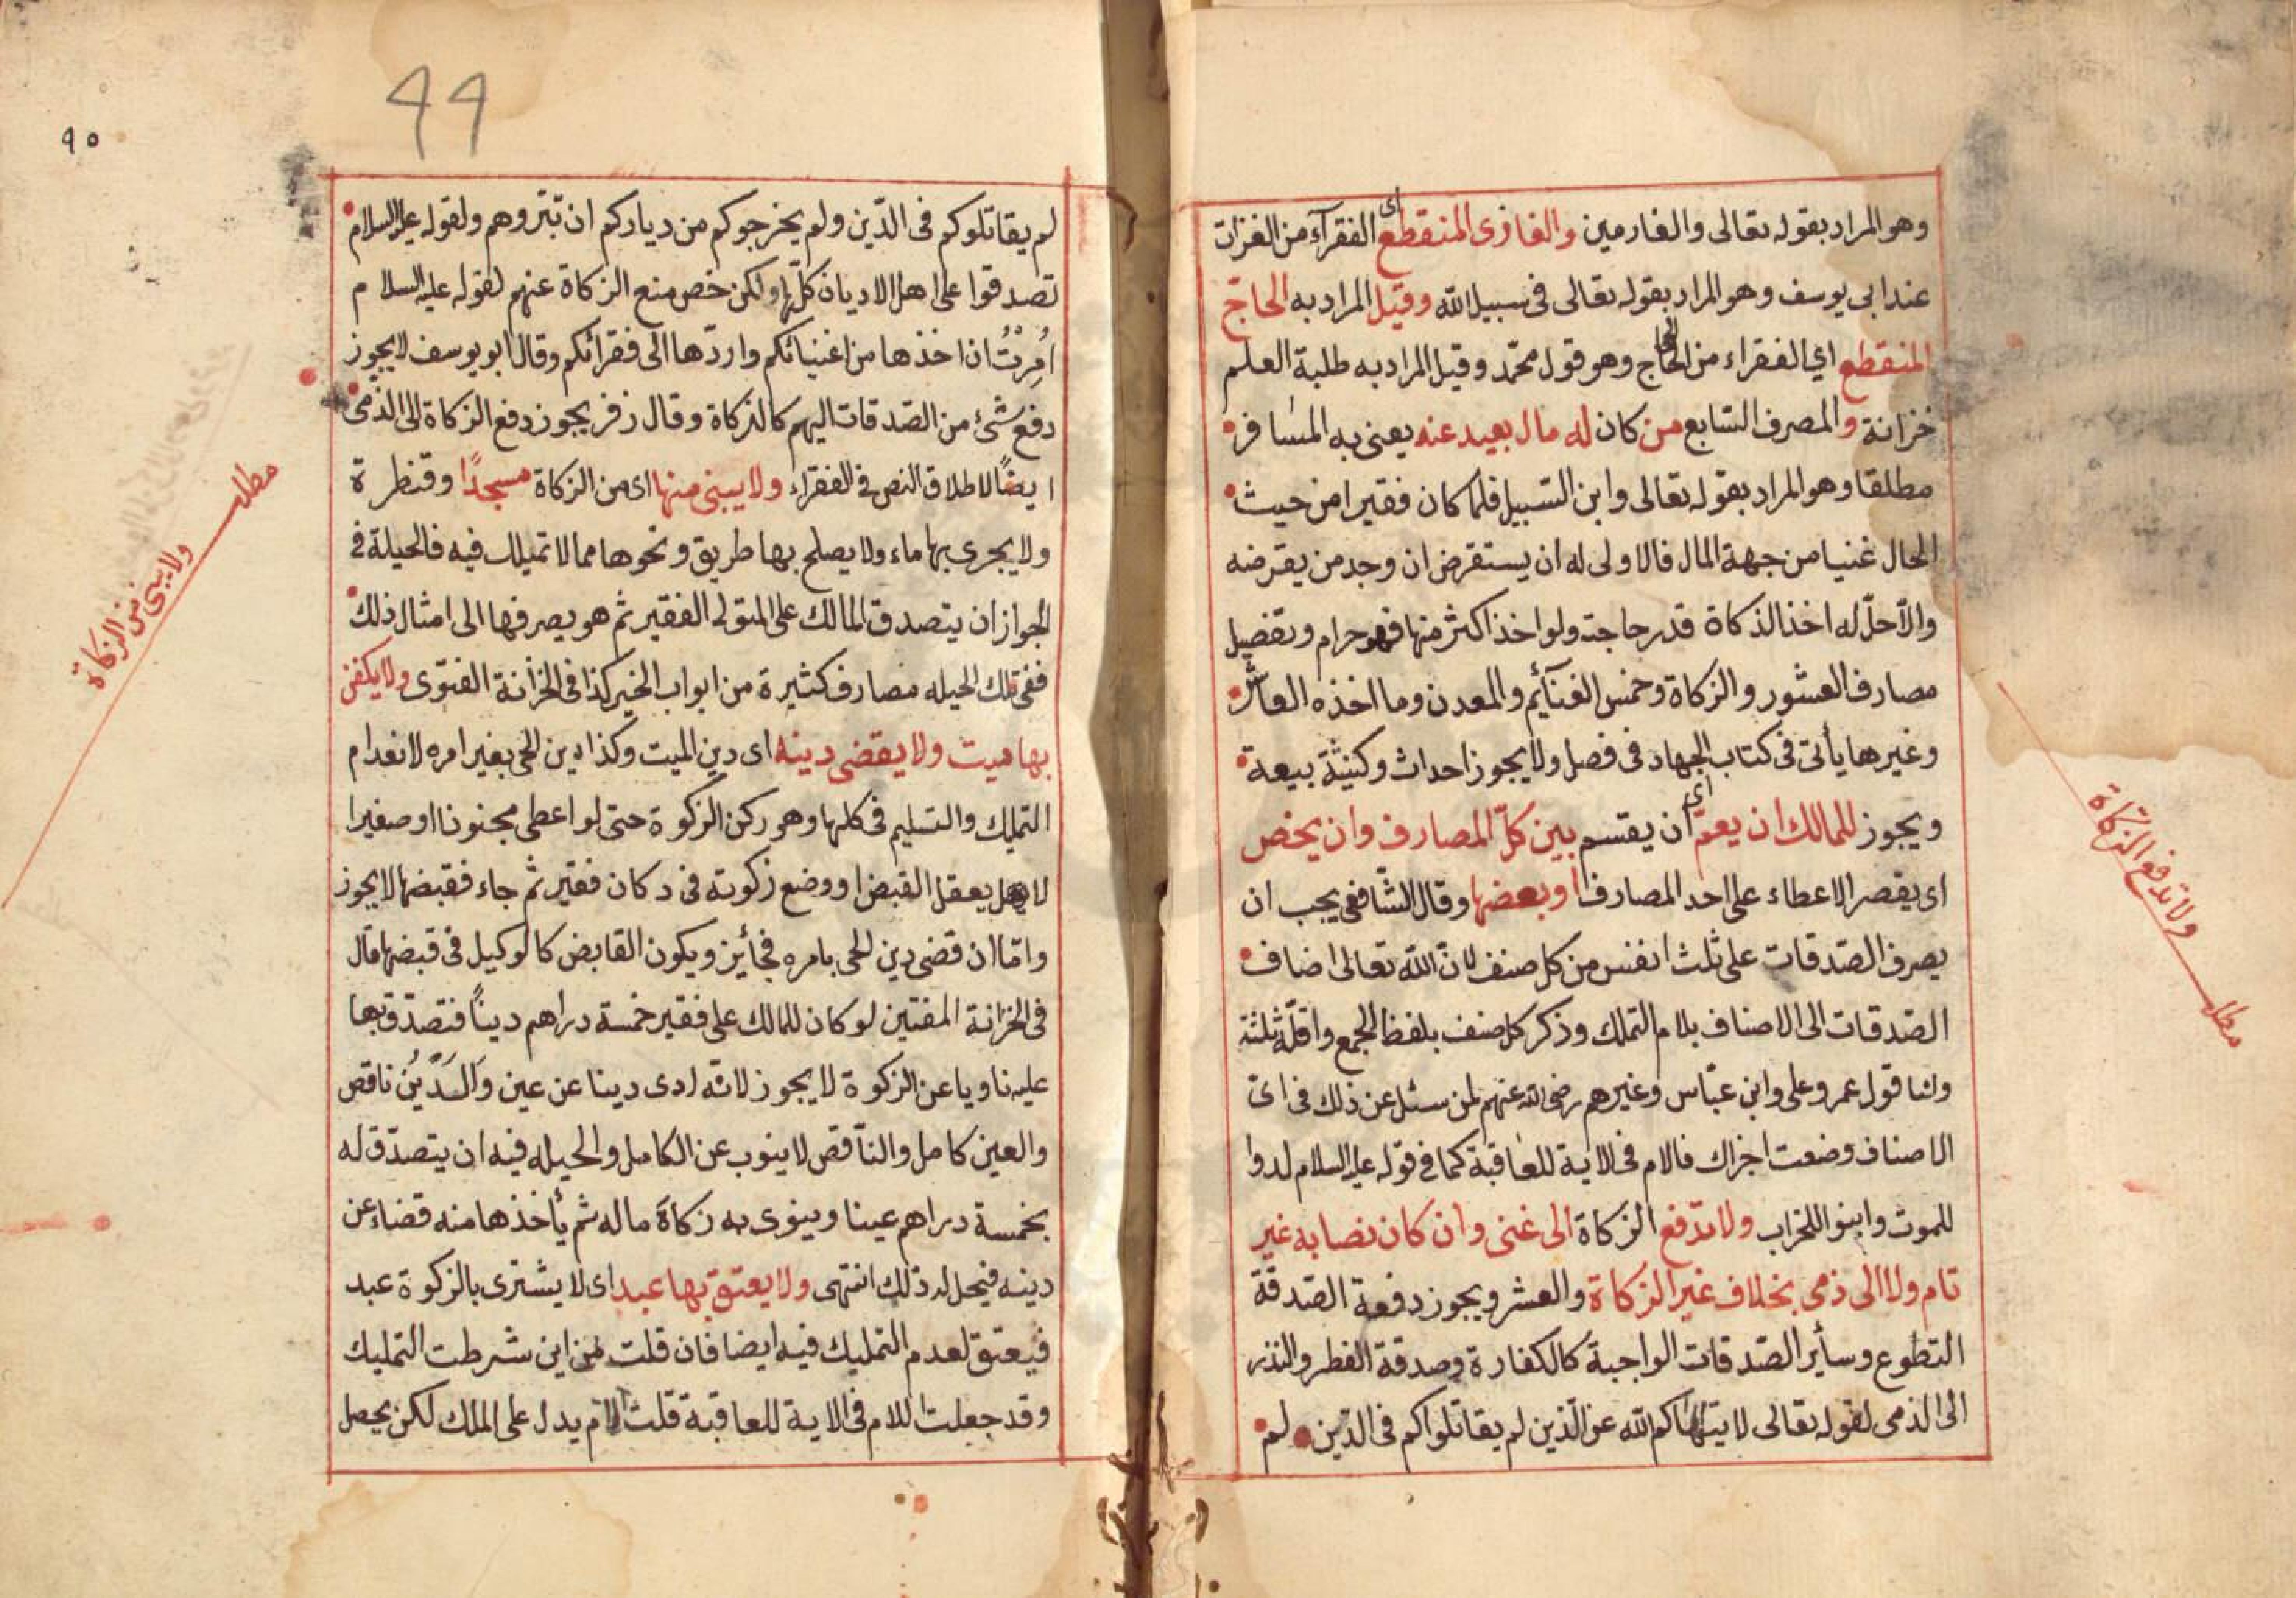 وهو المراد بقوله تعالى والغارمين والغازى المنقطع اى الفقرآء من الغزات
عند ابى يوسف وهو المراد بقوله تعالى فى سبيل الله وقيل المراد به الحاجّ
المنقطع اي الفقراء من الحاج وهو قول محمّد وقيل المراد به طلبة العلم
خزانة والمصرف السّابع من كان له مال بعيد عنه يعنى به المسافر
مطلقا وهو المراد بقوله تعالى وابن السّبيل فلما كان فقيرا من حيث
الحال غنيا من جهة المال فالاولى له ان يستقرض ان وجد من يقرضه
والّا حلّ له اخذ الذكاة قدر حاجته ولو اخذ اكثر منها فهو حرام وتفضيل
مصارف العشور والزكاة وخمس الغنآئم والمعدن وما اخذه العاشر
وغيرها يأتى فى كتاب الجهاد فى فصل ولا يجوز احداث وكنيثة بيعة
ويجوز للمالك ان يعمّ اى ان يقسم بين كلّ المصارف وان يخص
اى يقصر الاعطاء على احد المصارف او بعضها وقال الشّافعى يجب ان
يصرف الصّدقات على ثلث انفس من كل صنف لانّ الله تعالى اضاف
الصّدقات الى الاصناف بلام التملك وذكر كل صنف بلفظ الجمع واقلّه ثلثة
ولنا قول عمر وعلى وابن عبّاس وغيرهم رضى الله عنهم لمن سئل عن ذلك فى اىّ
الاصناف وضعت اجزاك فالام فى الاية للعاقبة كما فى قوله عليه السلام لدوا
للموت وابنوا للخراب ولا تدفع الزكاة الى غنى وان كان نصابه غير
تام ولا الى ذمى بخلاف غير الزكاة والعشر ويجوز دفعة الصّدقة
التطوع وسأير الصّدقات الواجبة كالكفارة وصدقة الفطر والنذر
الى الذمى لقوله تعالى لا ينهاكم الله عن الّذين لم يقاتلواكم فى الدّين لم
ولا تدفع الزكاة
مطلب
٩٥
٩٩
لم يقاتلوكم فى الدّين ولم يخرجوكم من دياركم ان تبّروهم ولقوله عليه السلام
تصدقوا على اهل الاديان كلّها ولكن خص منع الزكاة عنهم لقوله عليه السلام
اُمِرْتُ ان اخذها من اغنيائكم واردّها الى فقرائكم وقال ابو يوسف لا يجوز
دفع شئ من الصّدقات اليهم كالزكاة وقال زفر يجوز دفع الزكاة الى الذمى
ايضًا لاطلاق النص فى الفقراء ولا يبنى منها اى من الزكاة مسجدًا وقنطرة
ولا يجرى بها ماء ولا يصلح بها طريق ونحوها مما لا تميلك فيه فالحيلة فى
الجواز ان يتصدق المالك على المتولى الفقير ثم هو يصرفها الى امثال ذلك
ففى تلك الحيله مصارف كثيرة من ابواب الخير كذا فى الخزانة الفتوى ولا يكفن
بها ميت ولا يقضى دينه اى دين الميت وكذا دين الحى بغير امره لانعدام
التمليك والتسليم فى كلها وهو ركن الزكوة حتى لو اعطى مجنونا او صغيرا
لا يعقل القبض او وضع زكوته فى دكان فقير ثم جاء فقبضها لا يجوز
وامّا ان قضى دين الحى بامره فجأيز ويكون القابض كالوكيل فى قبضها قال
فى الخزانة المفتين لو كان للمالك على فقير خمسة دراهم دينًا فتصدّق بها
عليه ناويا عن الزكوة لا يجوز لانّه ادى دينا عن عين وَالدَّيْنُ ناقص
والعين كامل والنّاقص لا ينوب عن الكامل والحيله فيه ان يتصدّق له
بخمسة دراهم عينا وينوى به زكاة ماله ثم يأخذها منه قضاء عن
دينه فيحل له ذلك انتهى ولا يعتق بها عبد اى لا يشترى بالزكوة عبد
فيعتق لعدم التمليك فيه ايضا فان قلت من اين شرطت التمليك
وقد جعلت اللام فى الاية للعاقبة قلت الام يدل على الملك لكن يحصل
مطلب
ولا يبنى من الزكاة